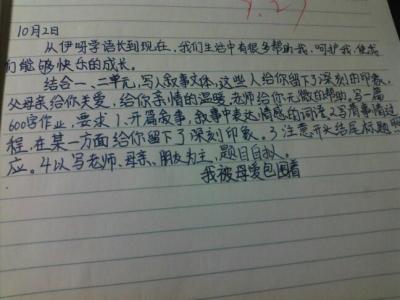 9.29
10月2日
从伊呀学语长到现在,我们生活中有很多帮助我,呵护我,使我
们能够快乐的成长。
结合一、二单元,写人叙事文体,这些人给你留下了深刻的印象。
父母亲给你关爱,给你亲情的温暖,老师给你无微的帮助。写一篇
600字作业,要求1、开篇叙事,叙事中表达情感的词语。2写清事情过
程,在某一方面给你留下了深刻印象。3、注意开头结尾标题
应。4以写老师、母亲、朋友为主,题目自拟。
我被母爱包围着